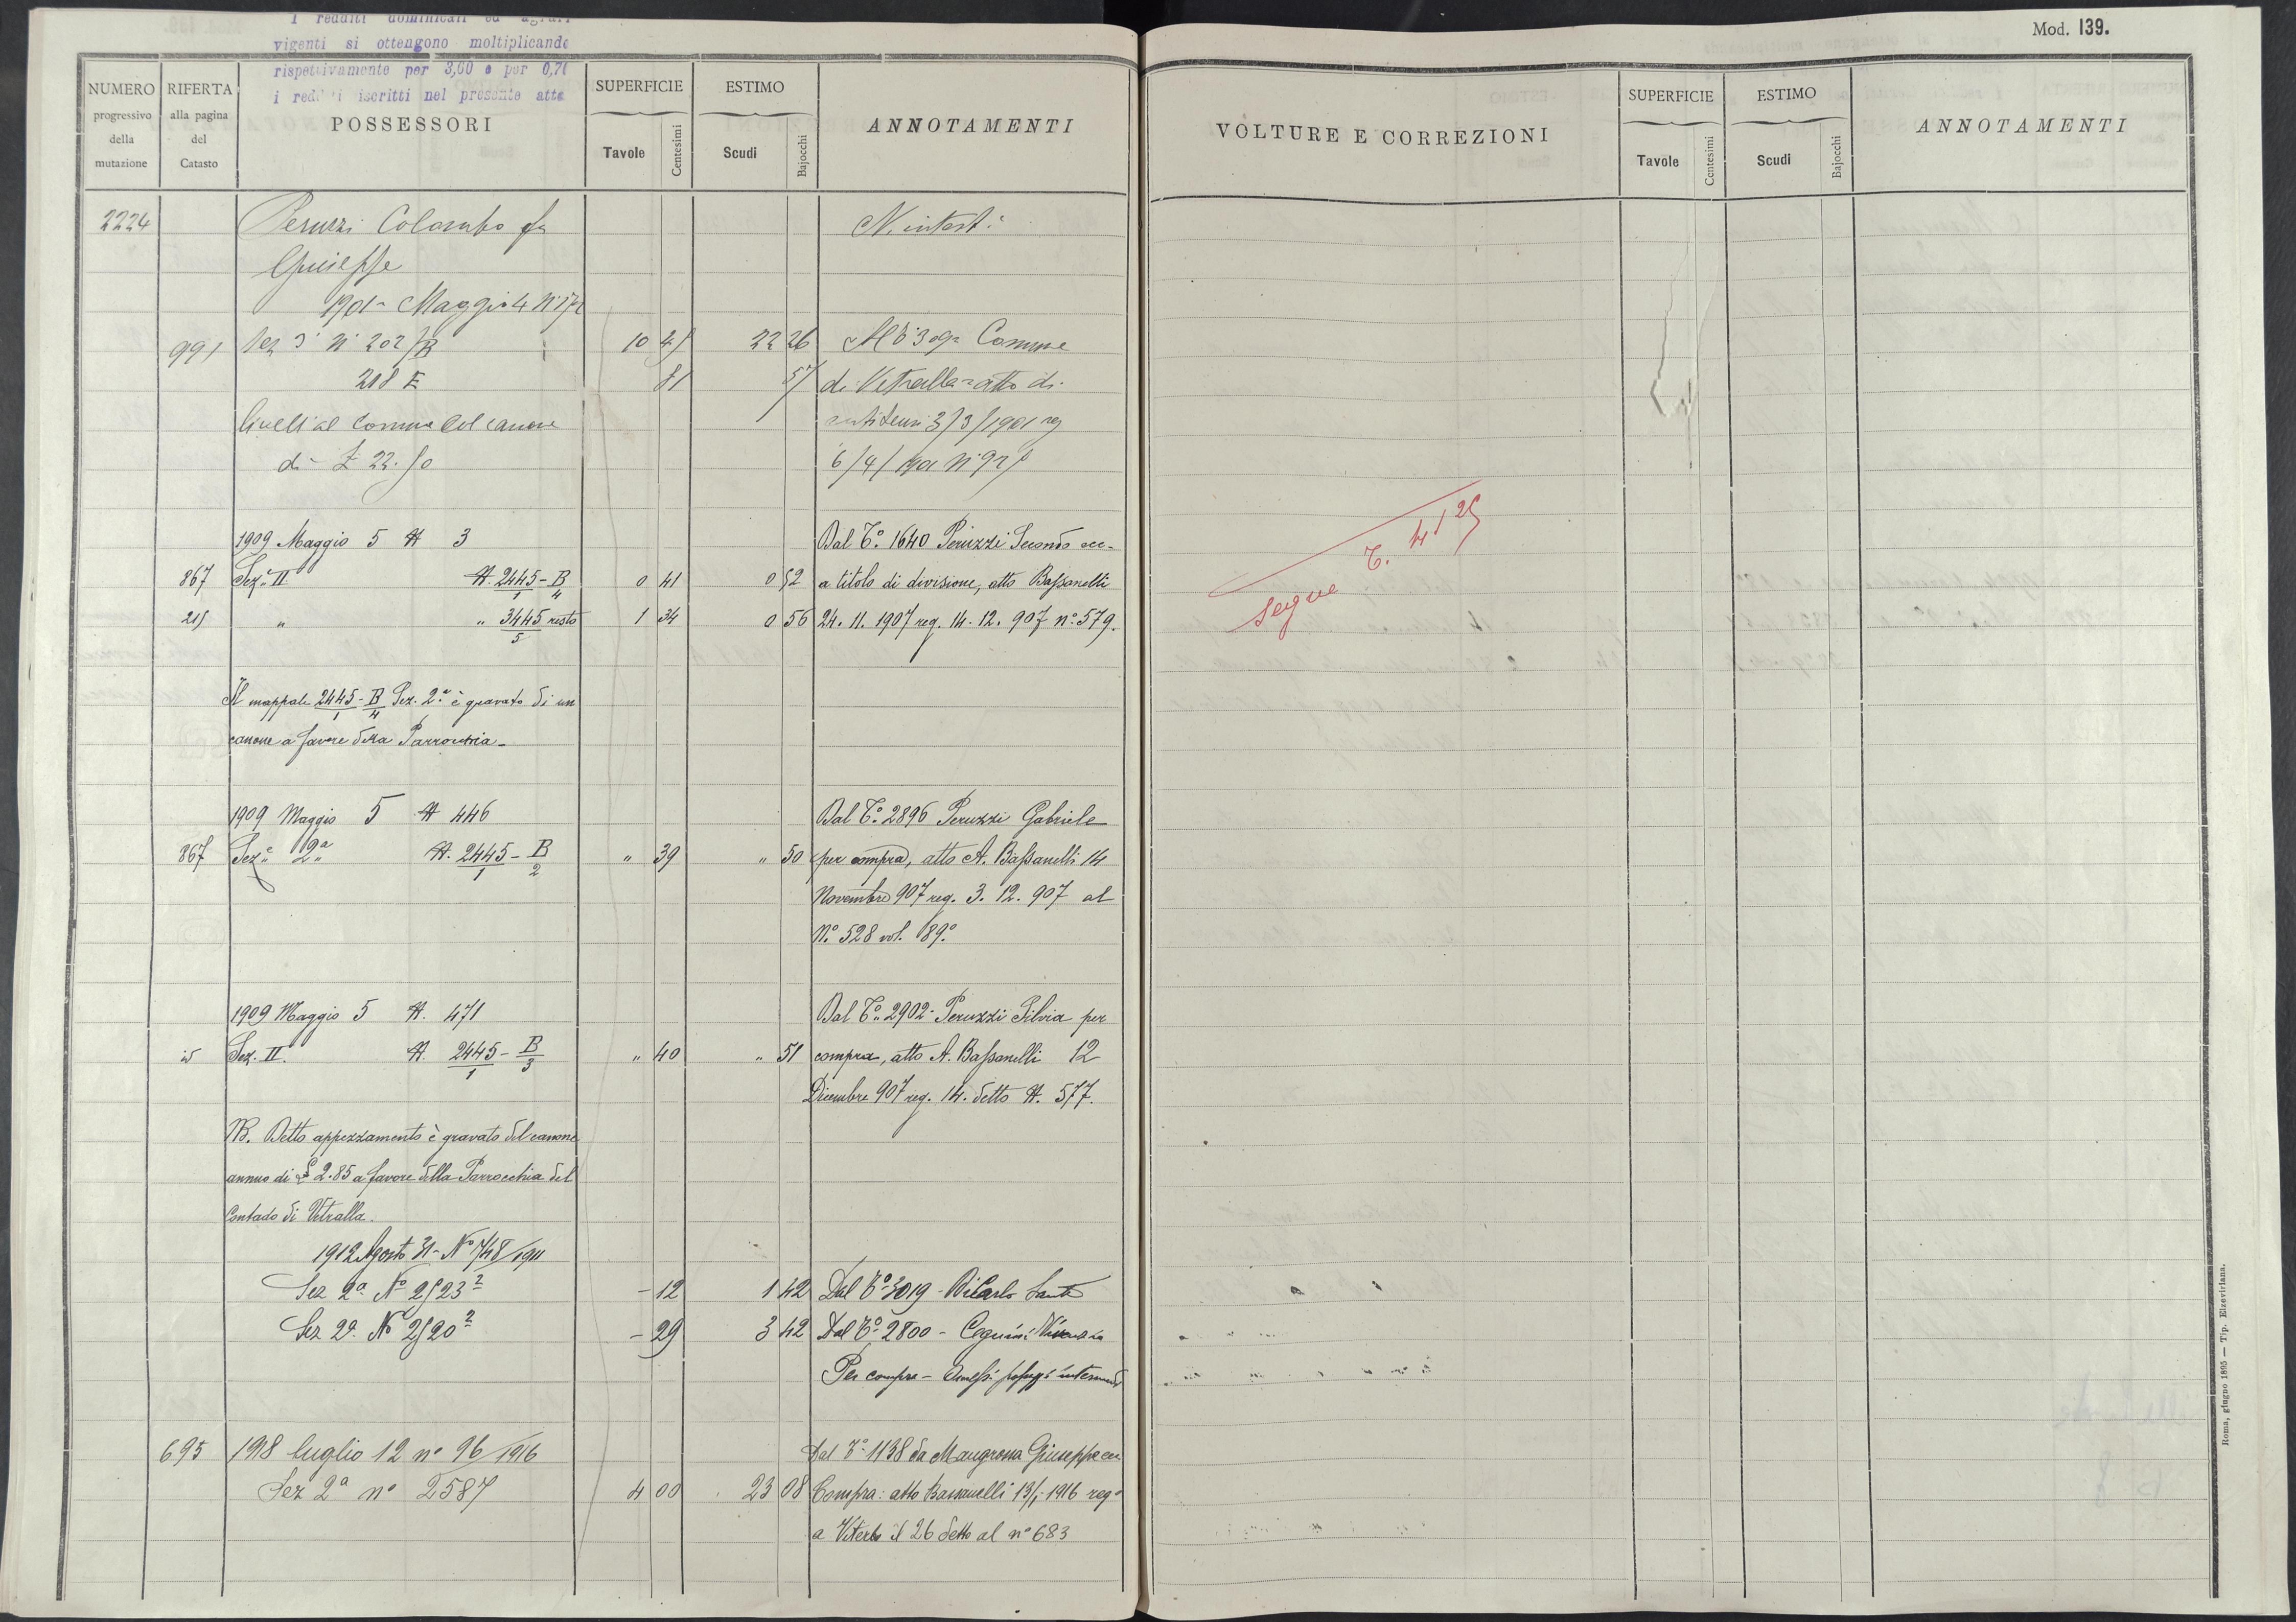 Mod. 139.
I redditi dominicali ed agrari
vigenti si ottengono moltiplicando
rispettivamente per 3,60 e per 0,70
i redditi iscritti nel presente atto
NUMERO progressivo della mutazione
RIFERTA alla pagina del Catasto
POSSESSORI
SUPERFICIE Tavole Centesimi
ESTIMO Scudi Bajocchi
ANNOTAMENTI
VOLTURE E CORREZIONI
SUPERFICIE Tavole Centesimi
ESTIMO Scudi Bajocchi
ANNOTAMENTI
2224 Peruzzi Colombo fu N. intest.
Giuseppe
1901 Maggio 4 N
991 Sez 3ª N 202/B 10 22 26 Comune
218 E 81 57 di Vetralla atto di
livell al Comune col canone 3/3/1901 reg
di £ 22.50 6/4/
1909 Maggio 5 N 3 Dal T.º 1640 Peruzzi Secondo ecc.
867 Sez.e II N. 2445/1 - B/4 0 41 0 52 a titolo di divisione, atto Bassanelli
215 " " 3445/5 resto 1 34 0 56 24. 11. 1907 reg. 14. 12. 907 nº 579.
segue T. 4125
Il mappale 2445/1 - B/4 Sez. 2.ª è gravato di un
canone a favore della Parrocchia -
1909 Maggio 5 N 446 Dal T.º 2896 Peruzzi Gabriele
867 Sez.e 2.ª N. 2445/1 - B/2 " 39 " 50 per compra, atto A. Bassanelli 14
Novembre 907 reg. 3. 12. 907 al
N.º 528 vol. 89.º
1909 Maggio 5 N. 471 Dal T.º 2902 - Peruzzi Silvia per
id Sez. II. N. 2445/1 - B/3 " 40 " 51 compra, atto A. Bassanelli 12
Dicembre 907 reg. 14. detto N. 577.
NB. Detto appezzamento è gravato del canone
annuo di £ 2.85 a favore della Parrocchia del
Contado di Vetralla.
1912 Agosto 31 - Nº 748/1911
Sez 2ª Nº 2523² - 12 1 42 Dal Tº 3019 - DiCarlo Sante
Sez 2ª Nº 2520² - 29 3 42 Dal Tº 2800 -
Per compra - Omessi passaggi intermedi
695 1918 luglio 12 nº 96/1916 Dal Tº 1138 da Mangrossa Giuseppe ecc
Sez 2ª nº 2587 4 00 23 08 Compra: atto Bassanelli 13/1 1916 reg.º
a Viterbo il 26 detto al nº 683
Roma, giugno 1895 — Tip. Elzeviriana.